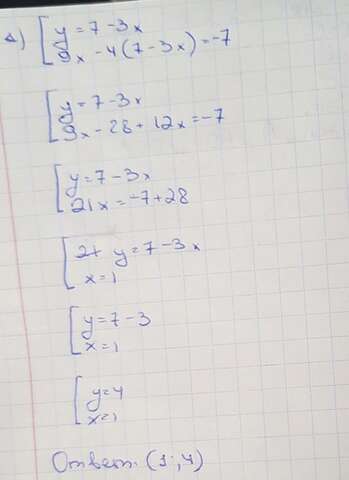 a) y = 7 - 3x
9x - 4(7 - 3x) = -7
y = 7 - 3x
9x - 28 + 12x = -7
y = 7 - 3x
21x = -7 + 28
2+ y = 7 - 3x
x = 1
y = 7 - 3
x = 1
y = 4
x = 1
Ответ: (1; 4)